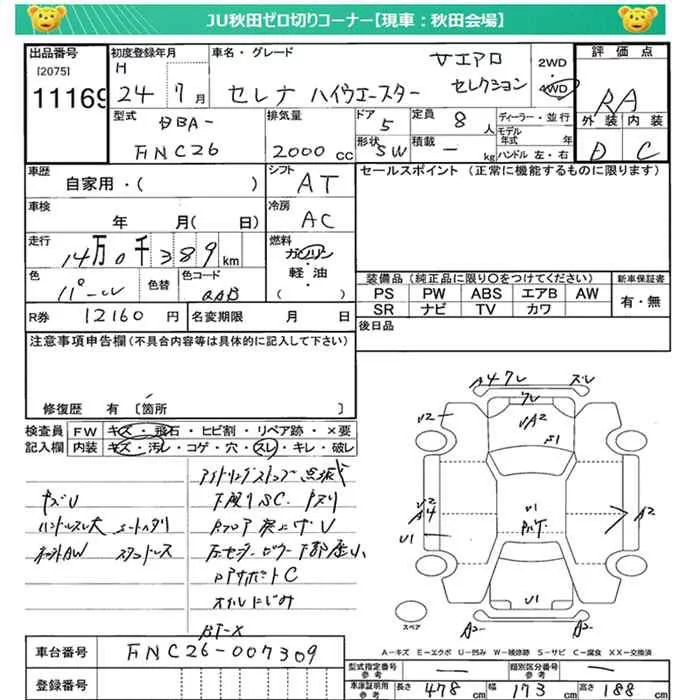 JU秋田ゼロ切りコーナー【現車：秋田会場】
出品番号
[2075]
11169
初度登録年月
H
24 7月
車名・グレード
セレナ ハイウエースター
Vエアロ
セレクション
2WD
4WD
評価点
RA
外装 内装
D C
型式
DBA-
FNC26
排気量
2000 cc
ドア
5
形状
SW
定員
8 人
積載
- kg
ディーラー・並行
モデル年式 年
ハンドル 左・右
車歴
自家用・( )
シフト
AT
セールスポイント (正常に機能するものに限ります)
車検
年 月( 日)
冷房
AC
走行
14万0千389km
燃料
ガソリン
軽・油
( )
色
パール
色替
色コード
QAB
装備品 (純正品に限り○をつけてください)
PS PW ABS エアB AW
SR ナビ TV カワ
新車保証書
有・無
R券 12160円
名変期限 月 日
後日品
注意事項申告欄(不具合内容等は具体的に記入して下さい)
修復歴 有〔箇所 〕
検査員
記入欄
FW キズ・飛石・ヒビ割・リペア跡・×要
内装 キズ・汚レ・コゲ・穴・スレ・キレ・破レ
アイドリングストップ点滅
下廻りSC
ハンドルスレ大
スタッドレス
Rフロア突上ゲU
オイルにじみ
A4 ワレ
ズレ
ワレ
U2
VA2
U1
U2
A4
U1
U1
A2
U1
A2
A2
スペア
A－キズ E－エクボ U－凹み W－補修跡 S－サビ C－腐食 XX－交換済
車台番号
FNC26-007309
登録番号
型式指定番号
参考
-
類別区分番号
参考
-
車庫証明用
参考
長さ 478 cm
幅 173 cm
高さ 188 cm